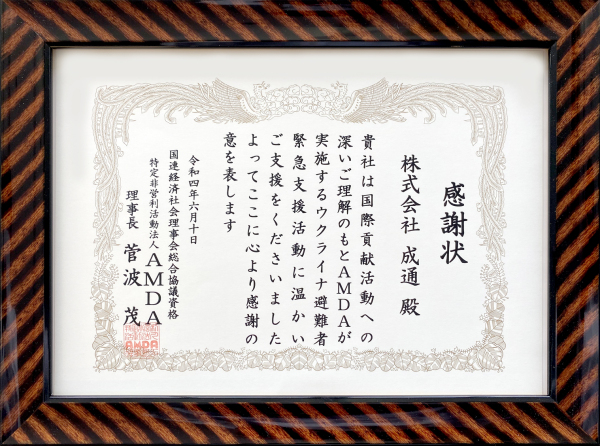 感謝状
株式会社 成通 殿
貴社は国際貢献活動への
深いご理解のもとAMDAが
実施するウクライナ避難者
緊急支援活動に温かい
ご支援をくださいました
よってここに心より感謝の
意を表します
令和四年六月十日
国連経済社会理事会総合協議資格
特定非営利活動法人AMDA
理事長 菅波 茂
AMDA